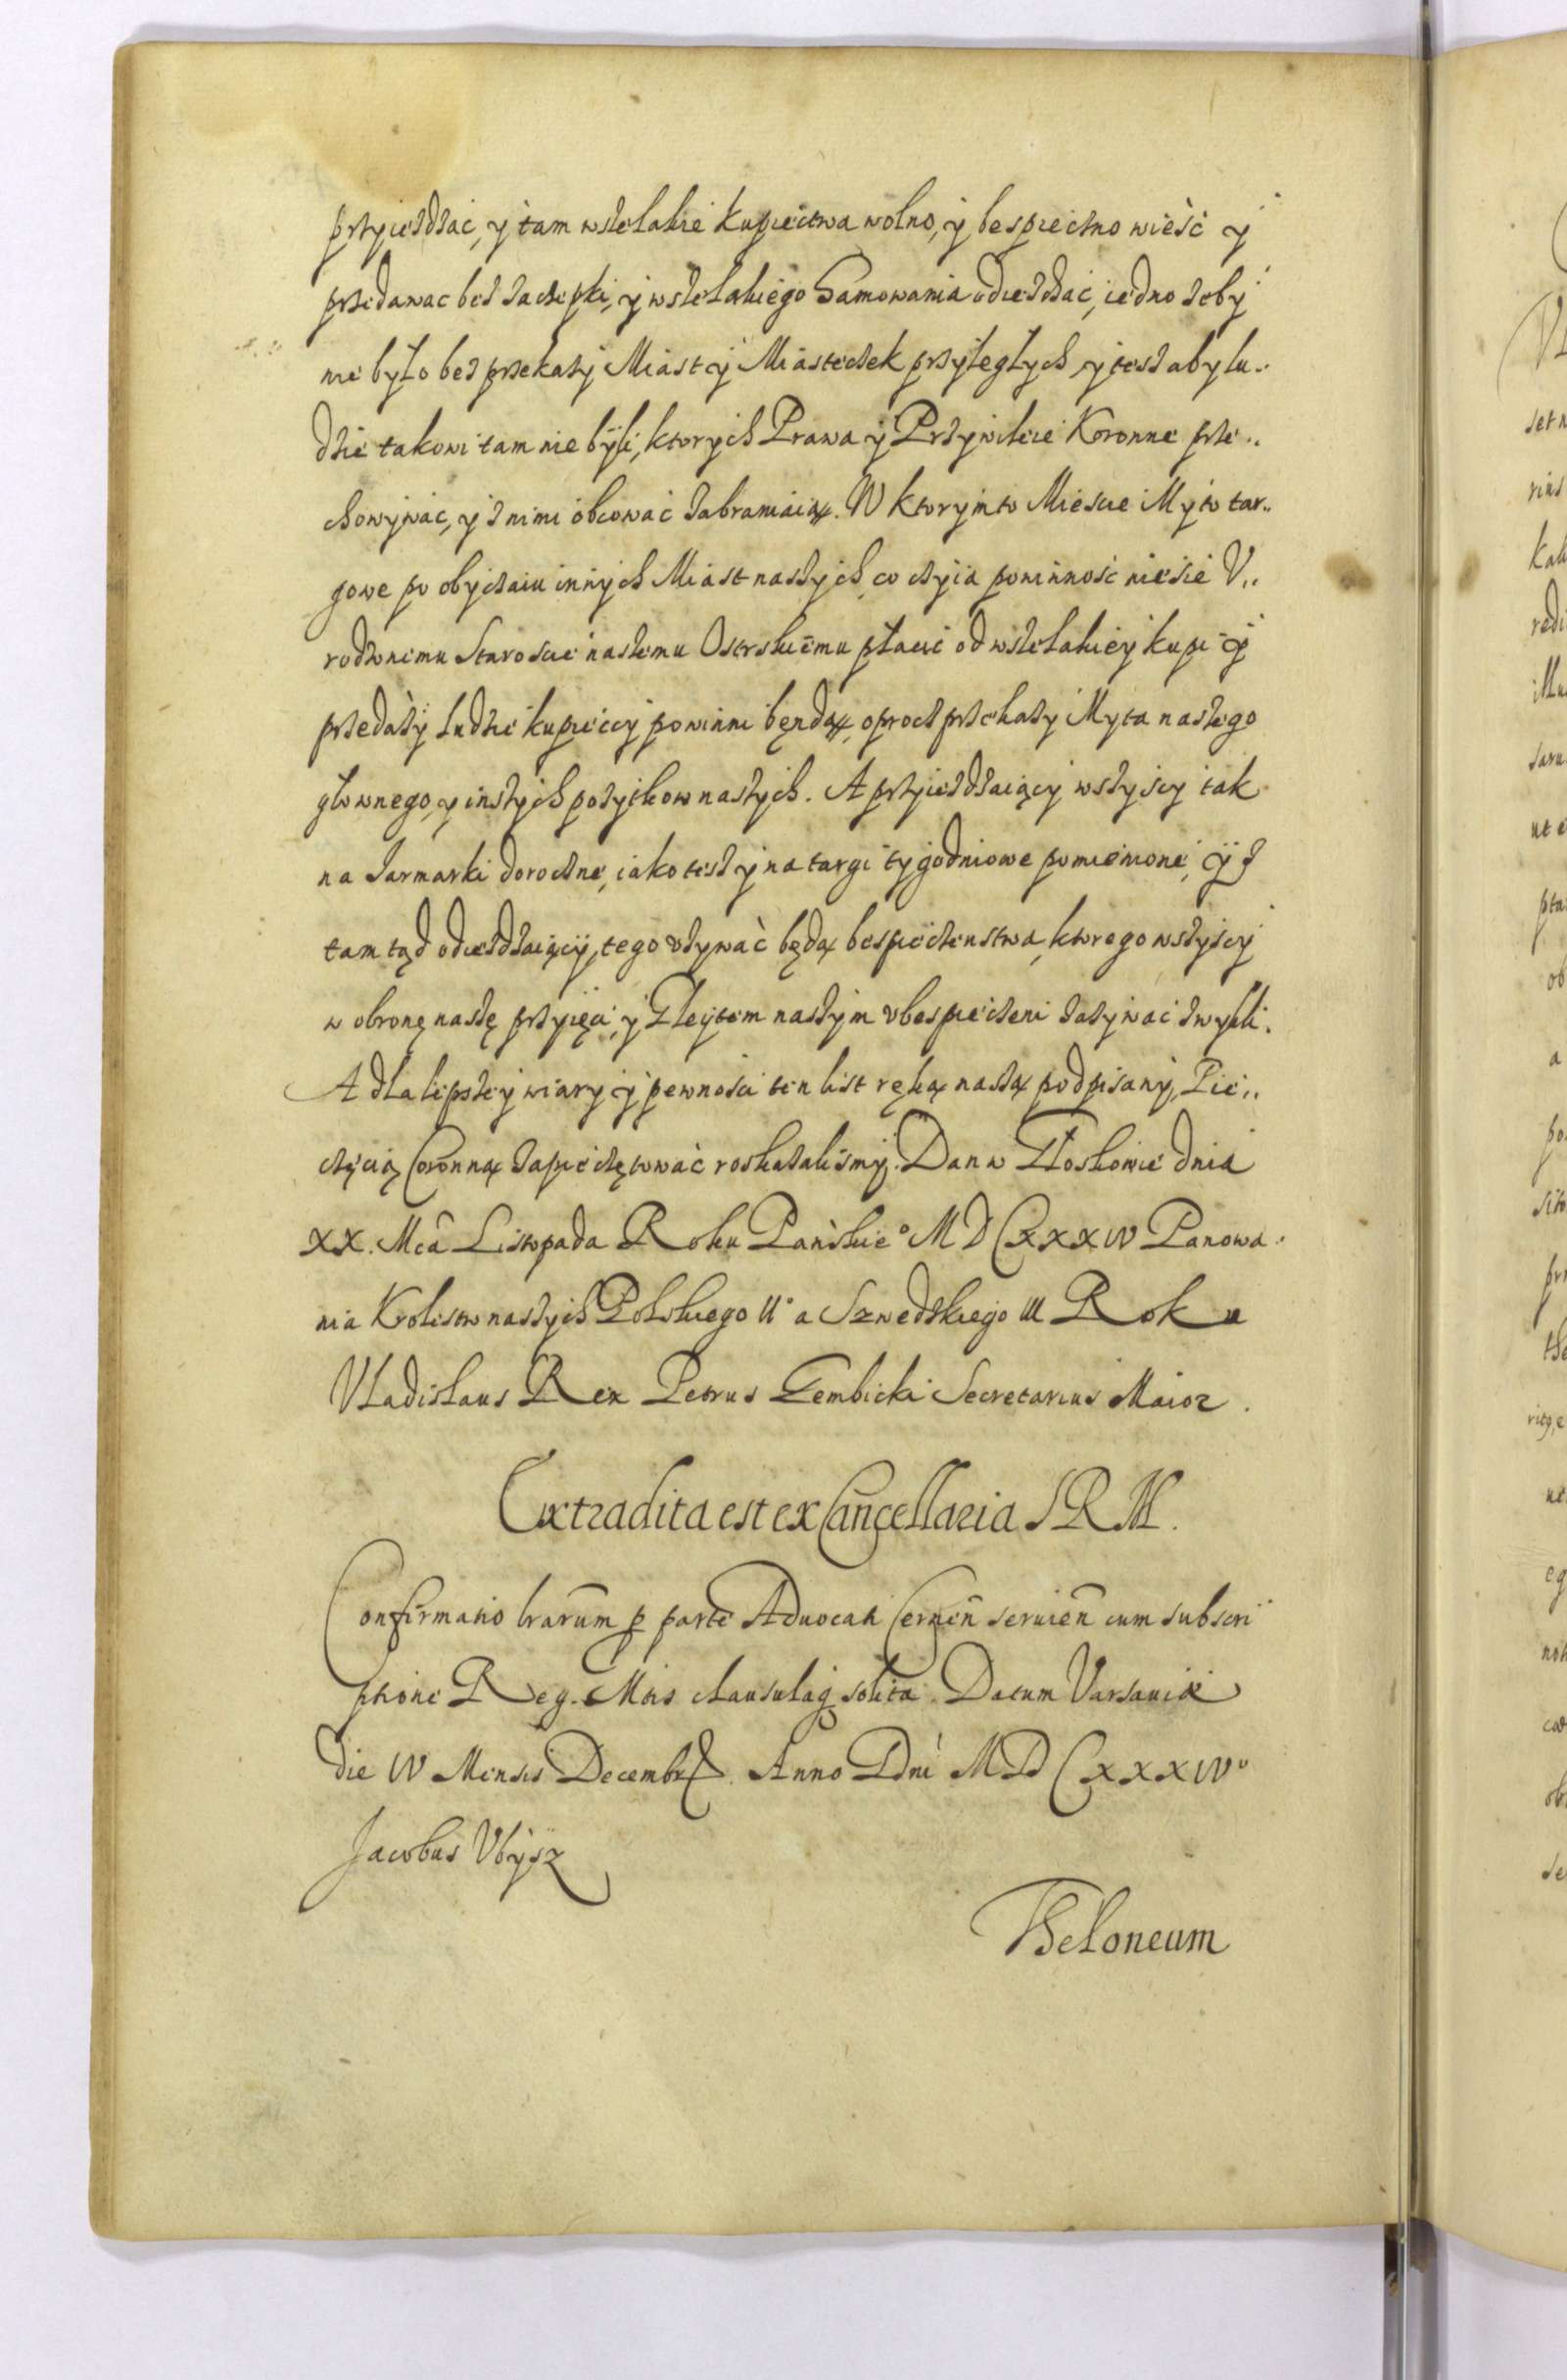 przyiezdzac, y tam wszelakie kupiectwa wolno, y bespieczno wieść y
przedawac bez zaczepki, y wszelakiego hamowania odiezdzać, iedno zeby
nie było bez przekazy Miast y Miasteczek przyległych, y tesz aby lu„
dzie takowi tam nie byli, ktorych Prawa y Przywileie Koronne prze„
chowywac, y z nimi obcować zabraniaią. W ktorym to Miescie Myto tar„
gowe po obyczaiu innych Miast naszych, co czyia powinność niesie V„
rodzonemu Staroscie naszemu Ostrskiemu płacić od wszelakiey kupi y
przedazy ludzie kupieccy powinni będą, oprocz przekazy Myta naszego
głownego, y inszych pozytkow naszych. A przyiezdzaiący wszyscy tak
na Jarmarki doroczne, iako tesz y na targi tygodniowe pomienione, y z
tam tąd odiezdzaiący, tego vzywać będą bespieczenstwa, ktorego wszyscy
w obronę naszę przyięci, y Gleytem naszym vbespieczeni zazywać zwykli.
A dla lepszey wiary y pewności ten list ręką naszą podpisany, Pie„
częcią Coronną zapieczętować roskazaliśmy. Dan w Tłoskowie dnia
XX. Mca Listopada Roku Pańskie° MDCXXXIV Panowa
nia Krolestw naszych Polskiego II° a Szwedzkiego III Roku
Vladislaus Rex Petrus Gembicki Secretarius Maior.
Extradita est ex Cancellaria S R M.
Confirmatio lrarum p parte Aduocati Cernen seruien cum subscri
ptione Reg. Mtis clausulaq solita. Datum Varsauiæ
die IV Mensis Decembr. Anno Dni MDCXXXIV°
Jacobus Vbysz
Theloneum